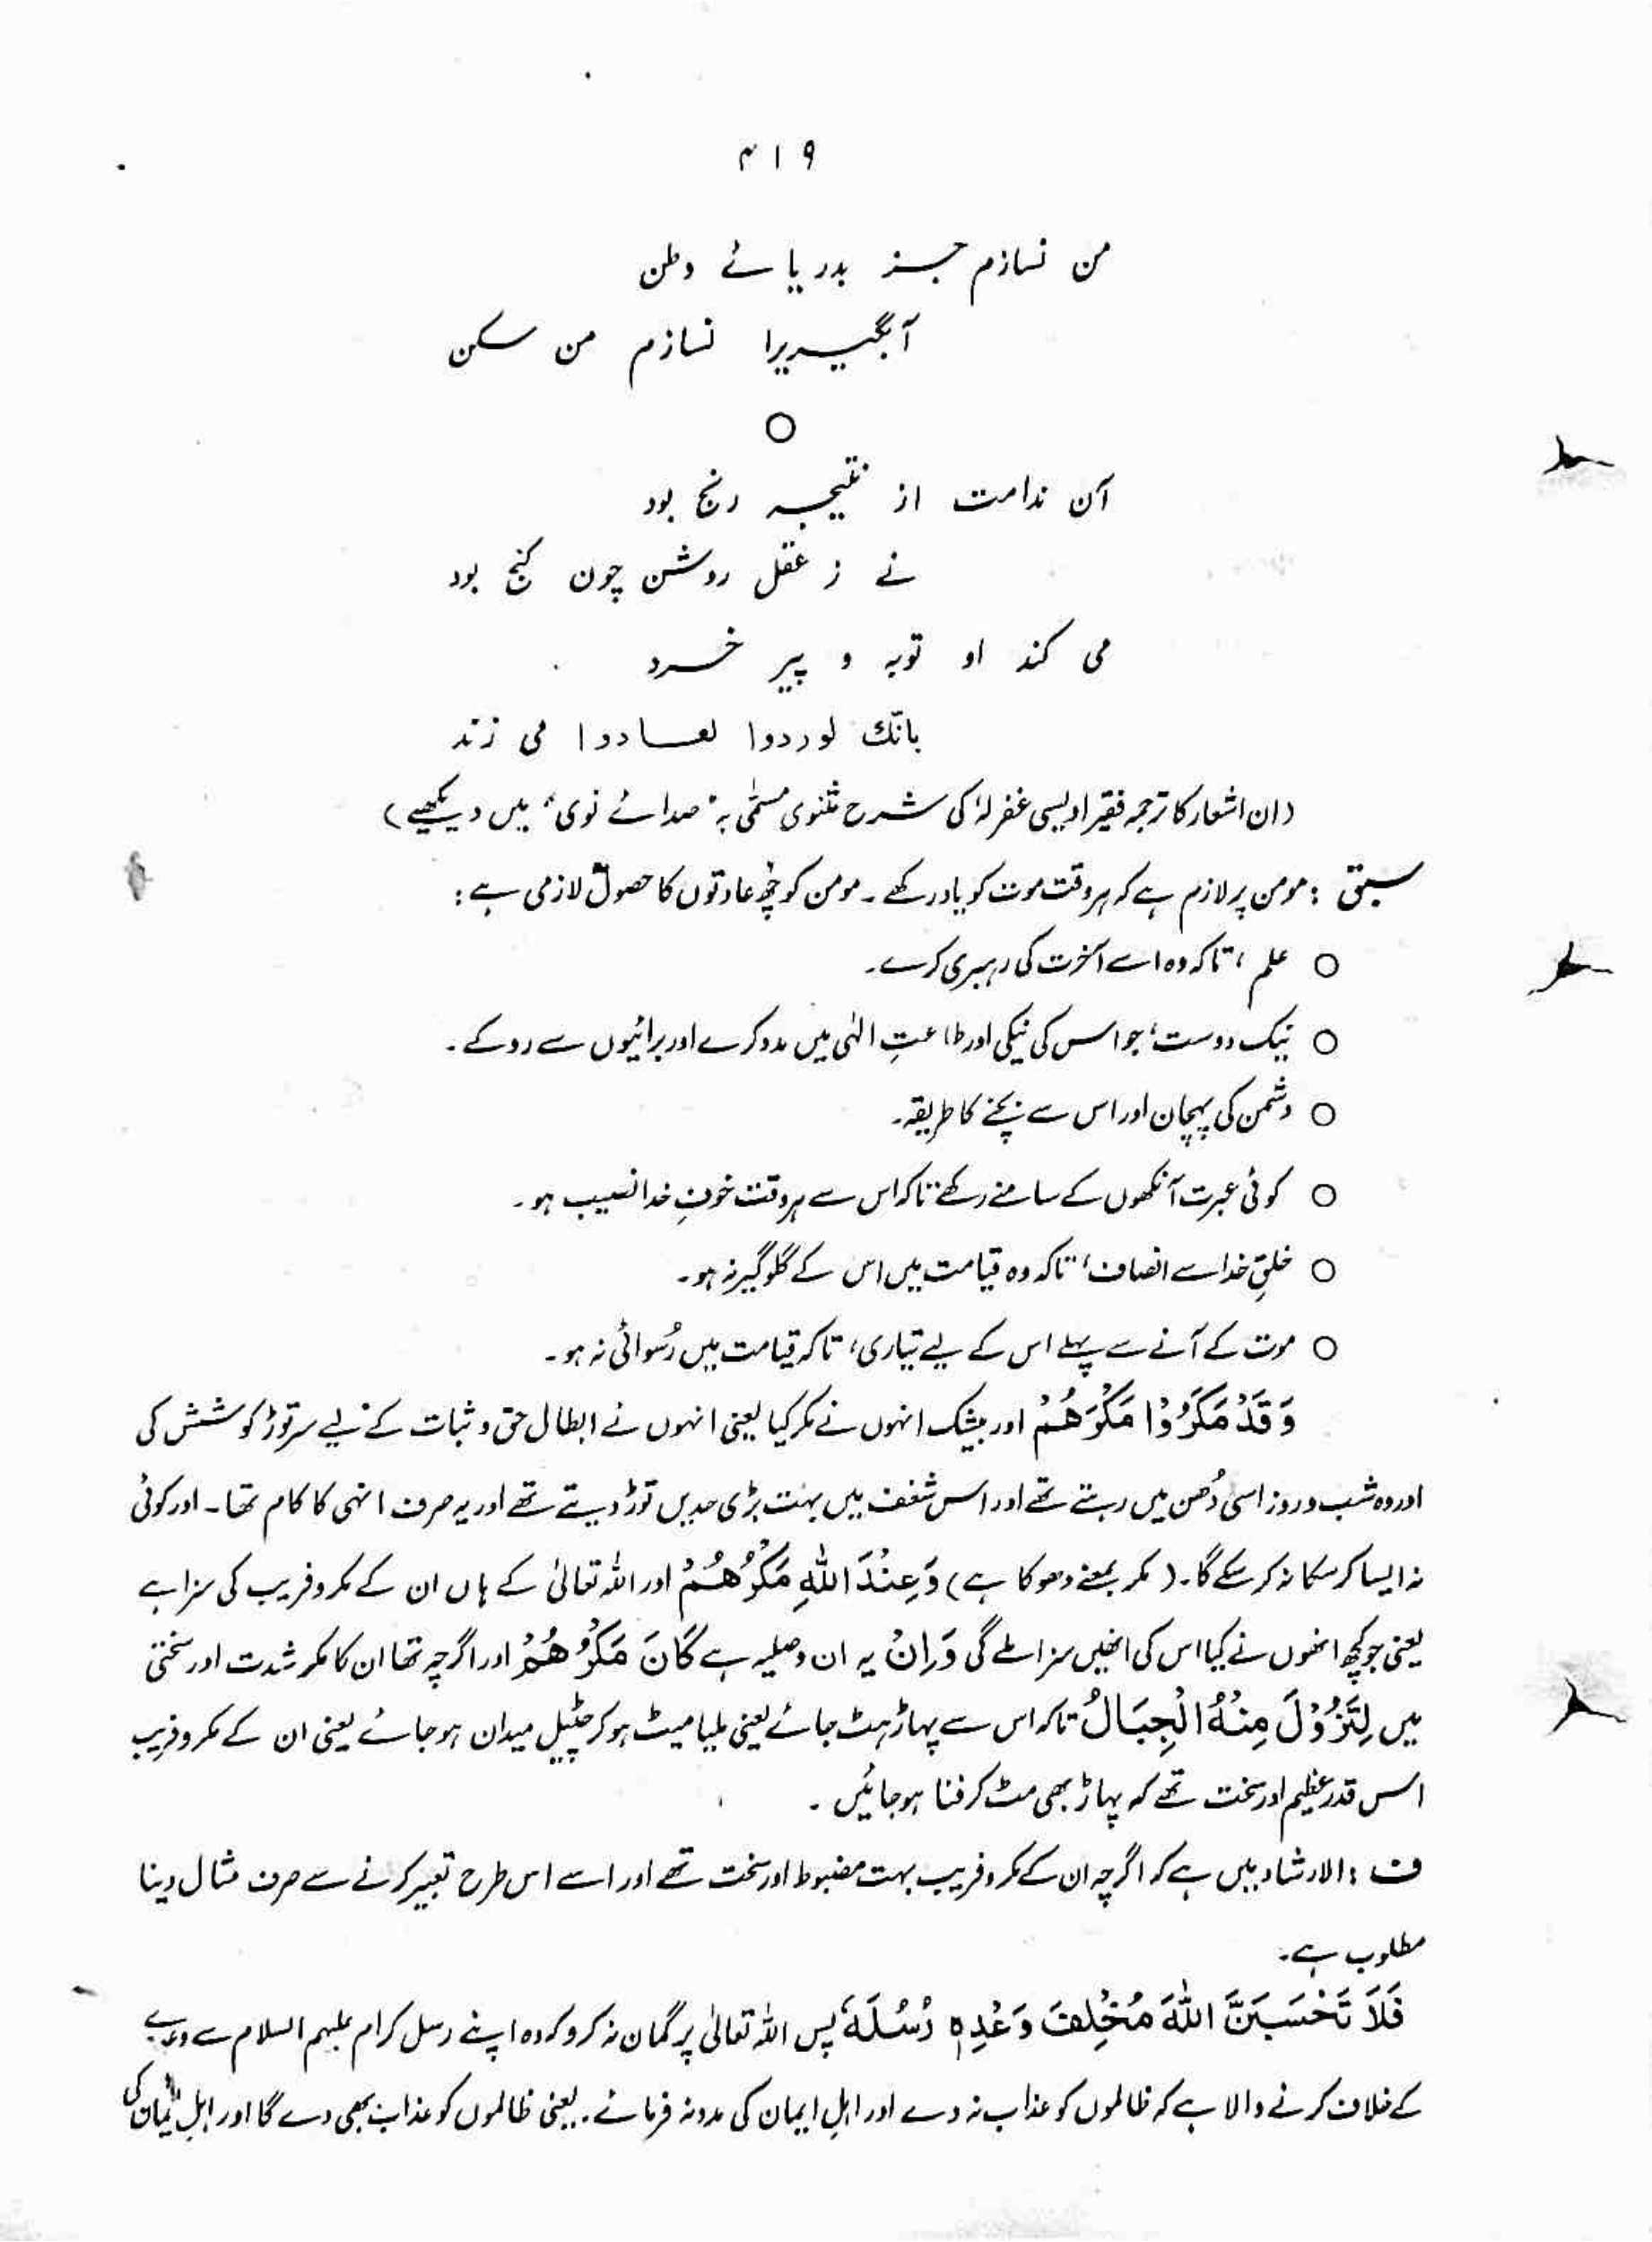 ۴۱۹
من نسازم جز بدریائے وطن
آبگیریرا نسازم من سکن
آن ندامت از نتیجہ رنج بود
نے ز عقل روشن چون گنج بود
می کند او توبہ و پیر خرد
بانگ لوردوا لعادوا می زند
(ان اشعار کا ترجمہ فقیر اویسی غفرلہٗ کی شرح مثنوی مسمّٰی بہ "صدائے نوی" میں دیکھیے)
سبق : مومن پر لازم ہے کہ ہر وقت موت کو یاد رکھے ۔ مومن کو چھ عادتوں کا حصول لازمی ہے :
○ علم، تاکہ وہ اسے آخرت کی رہبری کرے۔
○ نیک دوست، جو اس کی نیکی اور طاعتِ الٰہی میں مدد کرے اور برائیوں سے روکے ۔
○ دشمن کی پہچان اور اس سے بچنے کا طریقہ۔
○ کوئی عبرت آنکھوں کے سامنے رکھے تاکہ اس سے ہر وقت خوفِ خدا نصیب ہو ۔
○ خلقِ خدا سے انصاف، تاکہ وہ قیامت میں اس کے گلوگیر نہ ہو ۔
○ موت کے آنے سے پہلے اس کے لیے تیاری، تاکہ قیامت میں رُسوائی نہ ہو ۔
وَقَدْ مَكَرُوْا مَكْرَهُمْ اور بیشک انہوں نے مکر کیا یعنی انہوں نے ابطال حق و ثبات کے لیے سر توڑ کوشش کی
اور وہ شب و روز اسی دُھن میں رہتے تھے اور اس شغف میں بہت بڑی حدیں توڑ دیتے تھے اور یہ صرف انہی کا کام تھا ۔ اور کوئی
نہ ایسا کر سکا نہ کر سکے گا۔ (مکر بمعنے دھوکا ہے) وَعِنْدَ اللّٰهِ مَكْرُهُمْ اور اللہ تعالیٰ کے ہاں ان کے مکر و فریب کی سزا ہے
یعنی جو کچھ انھوں نے کیا اس کی انھیں سزا ملے گی وَاِنْ یہ ان وصلیہ ہے كَانَ مَكْرُهُمْ اور اگرچہ تھا ان کا مکر شدت اور سختی
میں لِتَزُوْلَ مِنْهُ الْجِبَالُ تاکہ اس سے پہاڑ ہٹ جائے یعنی ملیا میٹ ہو کر چٹیل میدان ہو جائے یعنی ان کے مکر و فریب
اس قدر عظیم اور سخت تھے کہ پہاڑ بھی مٹ کر فنا ہو جائیں ۔
ف : الارشاد میں ہے کہ اگرچہ ان کے مکر و فریب بہت مضبوط اور سخت تھے اور اسے اس طرح تعبیر کرنے سے صرف مثال دینا
مطلوب ہے۔
فَلَا تَحْسَبَنَّ اللّٰهَ مُخْلِفَ وَعْدِهٖ رُسُلَهٗ پس اللہ تعالیٰ پر گمان نہ کرو کہ وہ اپنے رسل کرام علیہم السلام سے وعدے
کے خلاف کرنے والا ہے کہ ظالموں کو عذاب نہ دے اور اہلِ ایمان کی مدد نہ فرمائے۔ یعنی ظالموں کو عذاب بھی دے گا اور اہلِ ایمان کی